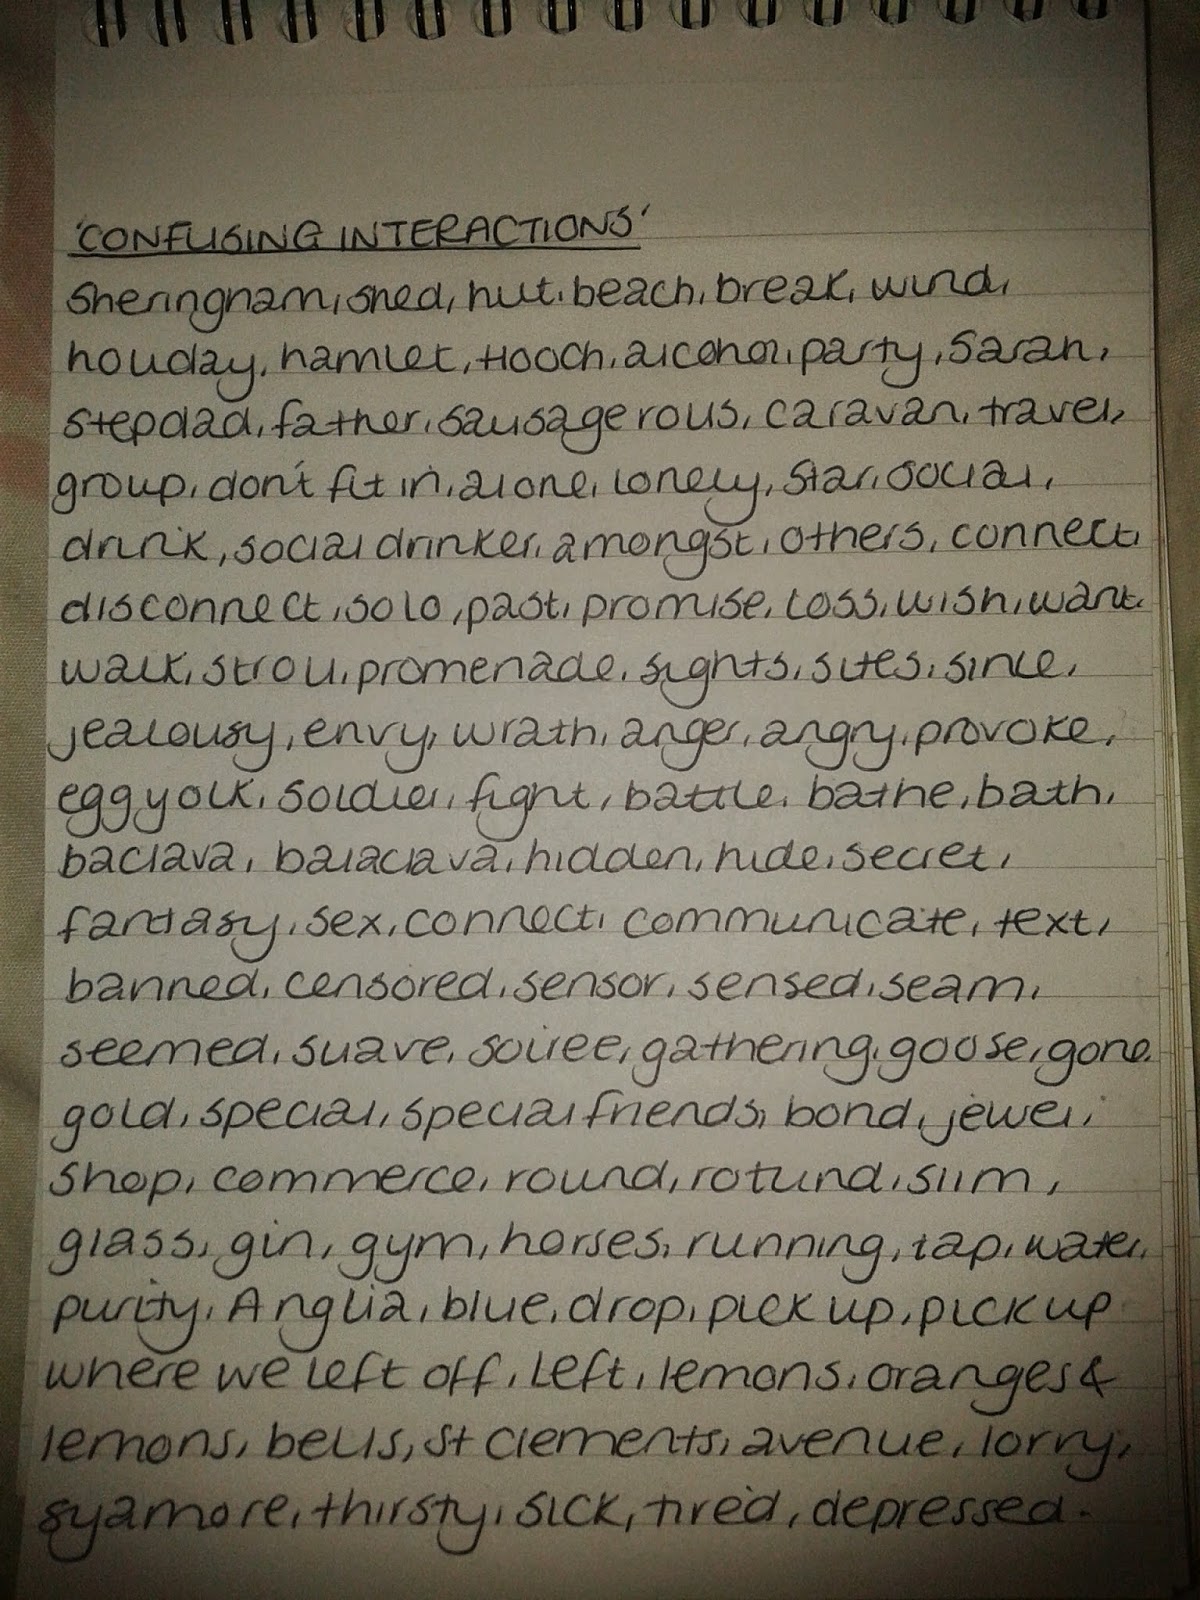 'CONFUSING INTERACTIONS'
Sheringham, shed, hut, beach, break, wind,
holiday, hamlet, Hooch, alcohol, party, Sarah,
stepdad, father, sausage rolls, caravan, travel,
group, don't fit in, alone, lonely, star, social,
drink, social drinker, amongst, others, connect,
disconnect, solo, past, promise, loss, wish, want,
walk, stroll, promenade, sights, sites, since,
jealousy, envy, wrath, anger, angry, provoke,
egg yolk, soldier, fight, battle, bathe, bath,
baclava, balaclava, hidden, hide, secret,
fantasy, sex, connect, communicate, text,
banned, censored, sensor, sensed, seam,
seemed, suave, soiree, gathering, goose, gone,
gold, special, special friends, bond, jewel,
shop, commerce, round, rotund, slim,
glass, gin, gym, horses, running, tap, water,
purity, Anglia, blue, drop, pick up, pick up
where we left off, left, lemons, oranges &
lemons, bells, St Clements, avenue, lorry,
syamore, thirsty, sick, tired, depressed.